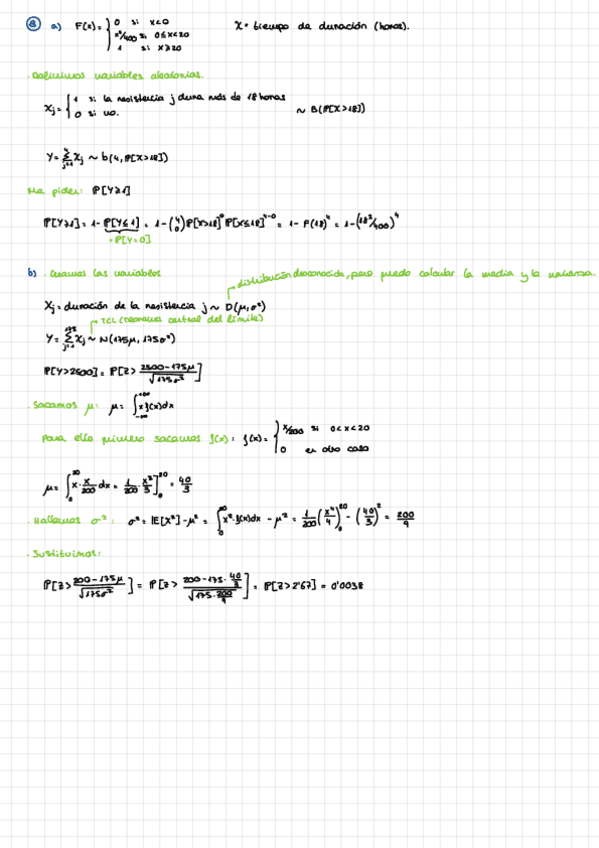 8 a) F(x) = { 0 si x<0
x²/400 si 0≤x<20
1 si x≥20
X = tiempo de duración (horas).
· Definimos variables aleatorias.
Xj = { 1 si la resistencia j dura más de 18 horas
0 si no.
~ B(P[X>18])
Y = Σ_{j=1}^{4} Xj ~ b(4, P[X>18])
Me piden: P[Y≥1]
P[Y≥1] = 1 - P[Y≤1] = 1 - (4 0) P[X>18]^0 P[X≤18]^{4-0} = 1 - F(18)^4 = 1 - (18²/400)^4
= P[Y=0]
b) · Creamos las variables
distribución desconocida, pero puedo calcular la media y la varianza.
Xj = duración de la resistencia j ~ D(μ, σ²)
TCL (teorema central del límite)
Y = Σ_{j=1}^{175} Xj ~ N(175μ, 175σ²)
P[Y>2500] = P[Z > (2500-175μ)/√(175σ²)]
· Sacamos μ: μ = ∫_{-∞}^{+∞} x f(x)dx
Para ello primero sacamos f(x): f(x) = { x/200 si 0<x<20
0 en otro caso
μ = ∫_0^{20} x · x/200 dx = 1/200 · x³/3 ]_0^{20} = 40/3
· Hallamos σ²: σ² = E[X²] - μ² = ∫_0^{20} x² · f(x)dx - μ² = 1/200 (x⁴/4)_0^{20} - (40/3)² = 200/9
· Sustituimos:
P[Z > (200-175μ)/√(175σ²)] = P[Z > (200-175·40/3)/√(175·200/9)] = P[Z>2'67] = 0'0038